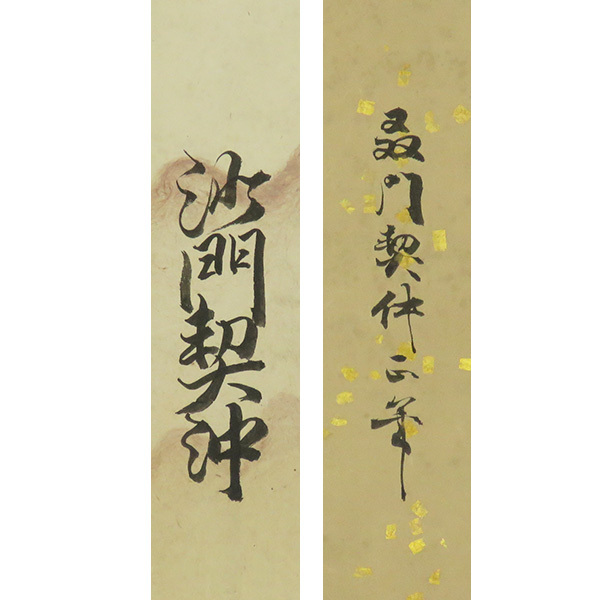 沙門契沖
桑門契沖正筆